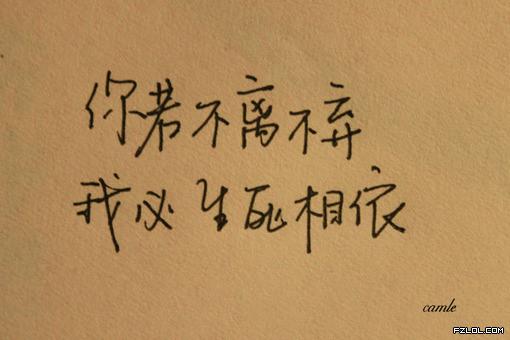 你若不离不弃
我必生死相依
camle
FZLOL.COM